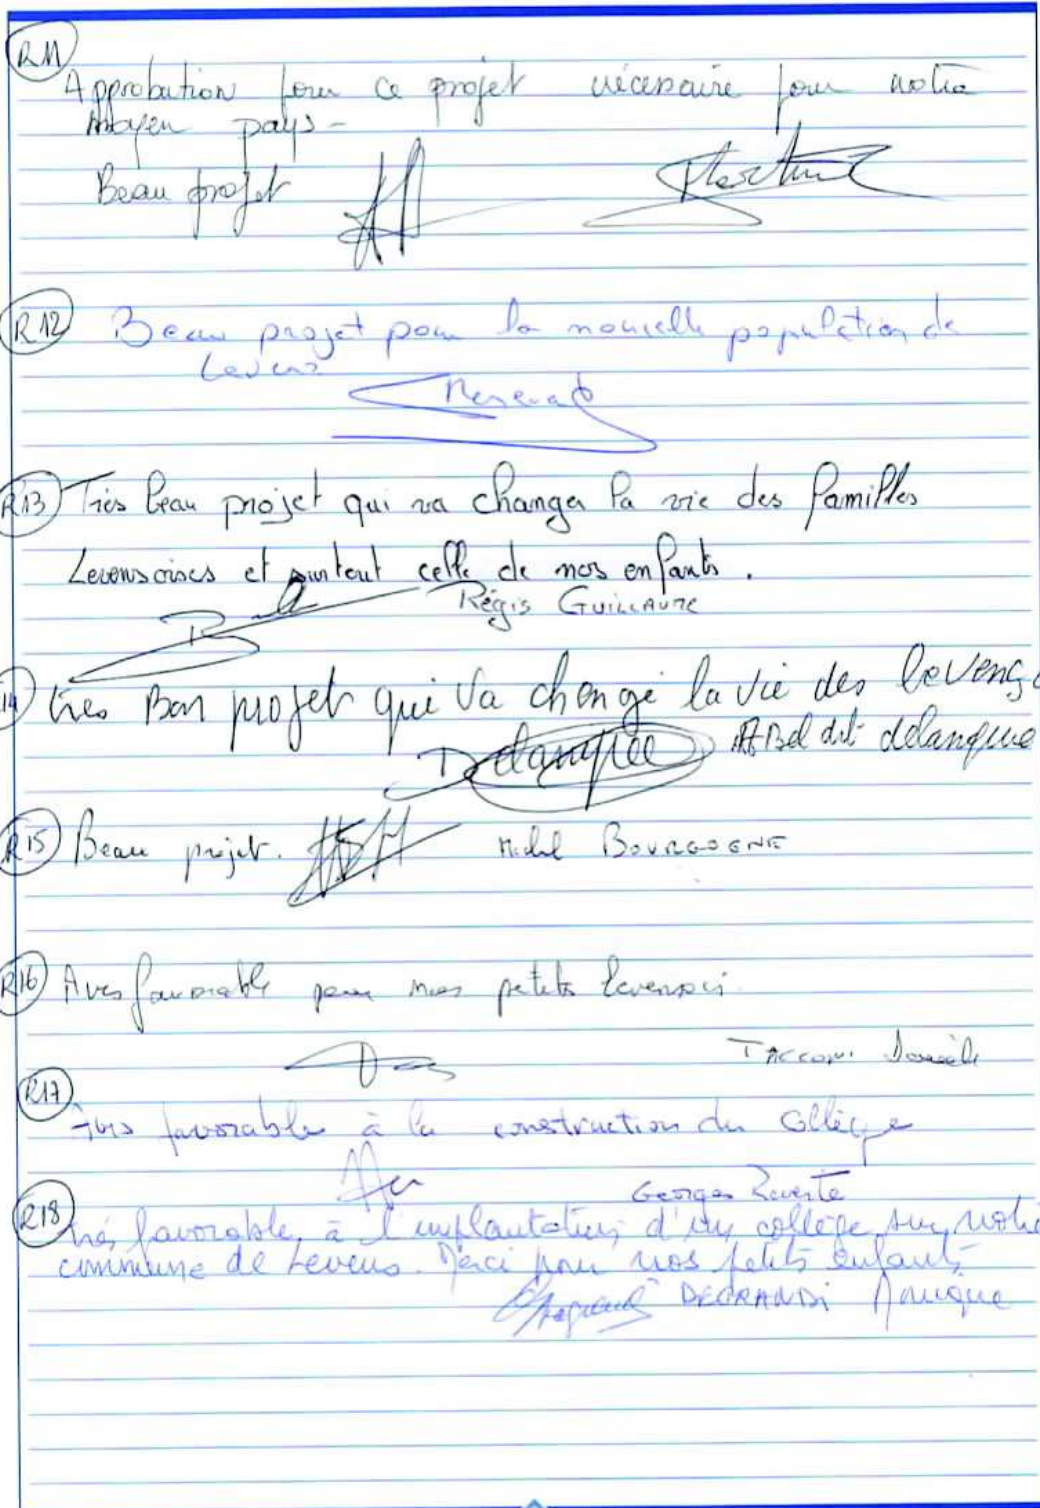 R11
Approbution pour ce projet nécessaire pour notre
moyen pays -
Beau projet
R12 Beau projet pour la nouvelle population de
Levens
R13 Très beau projet qui va changer la vie des familles
Levensoises et surtout celle de nos enfants.
Régis GUILLAUME
14 tres Bon projet qui va changé la vie des levenç
Delanquee ABel dit delanque
R15 Beau projet. Michel BOURGOGNE
R16 Avis favorable pour mes petits levensois
TACCONI Danièle
R17
Avis favorable à la construction du Collège
Georges Reverte
R18
très favorable, à l'implantation d'un collège sur notre
commune de Levens. Merci pour nos petits enfants
DEGRANDI Monique